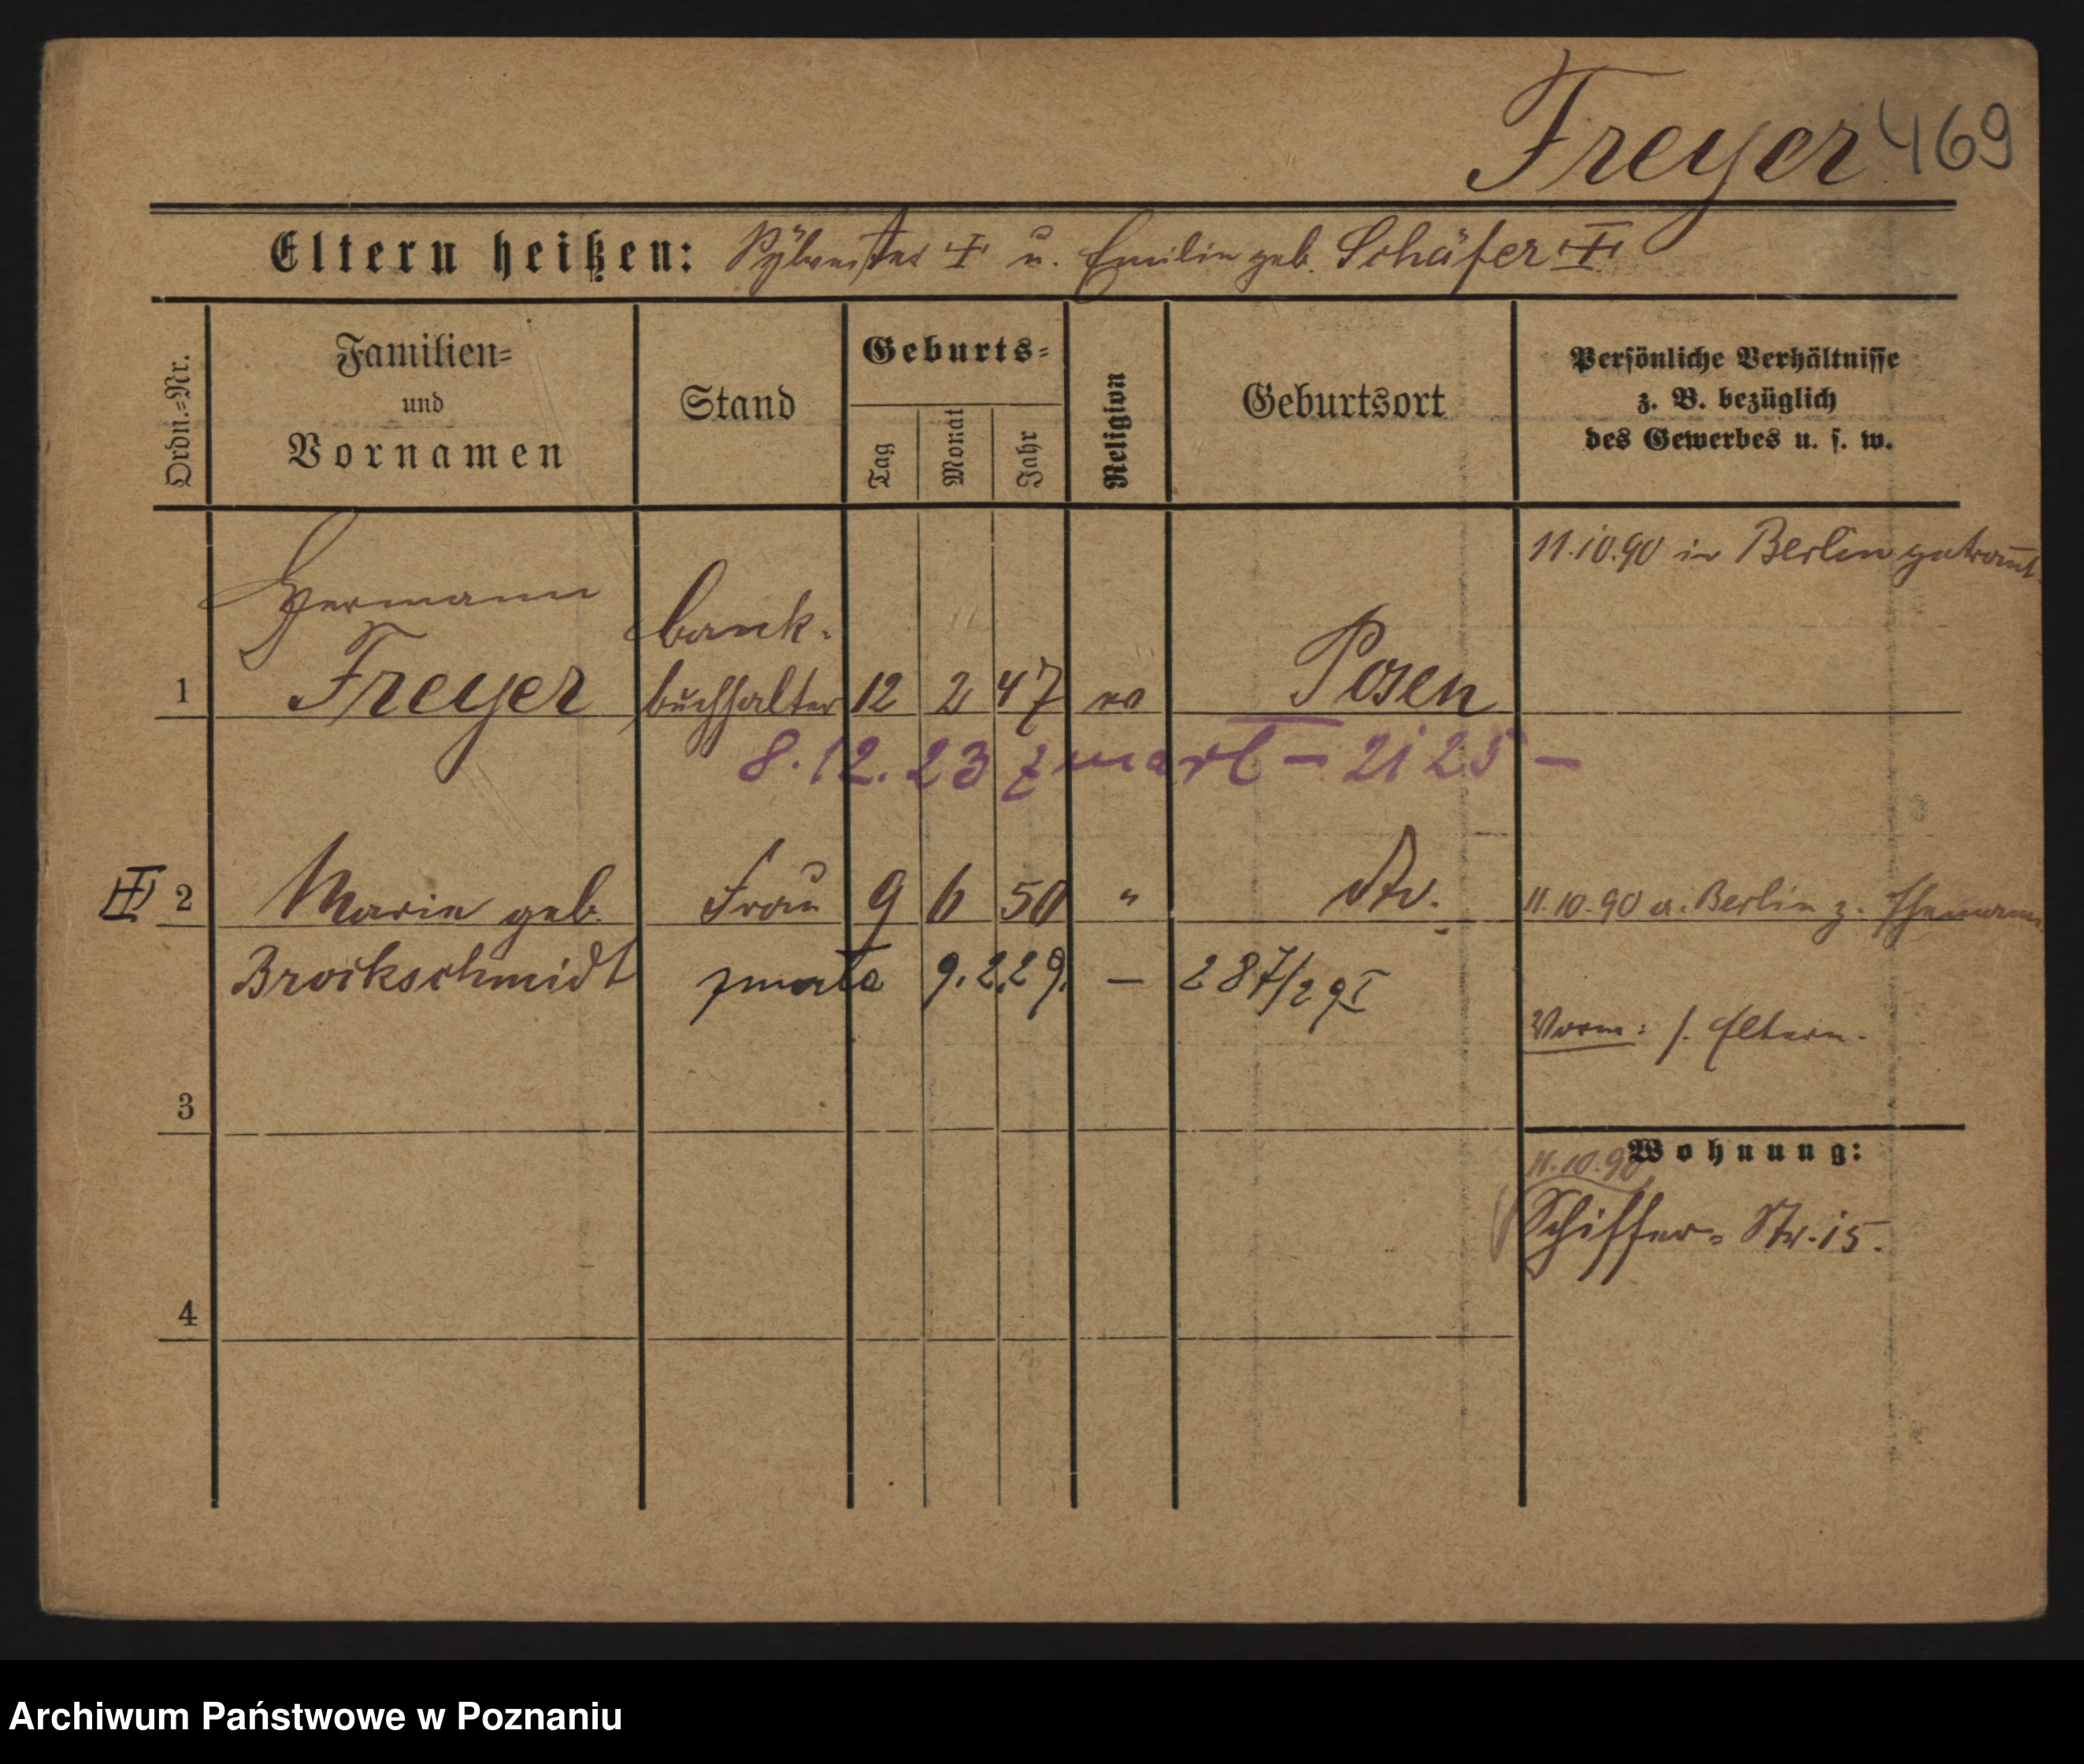 Freyer 469
Eltern heißen: Sylvester † u. Emilie geb. Schäfer †
Ordn.=Nr.
Familien=
und
Vornamen
Stand
Geburts=
Tag
Monat
Jahr
Religion
Geburtsort
Persönliche Verhältnisse
z. B. bezüglich
des Gewerbes u. s. w.
11.10.90 in Berlin getraut
Hermann
bank-
1 Freyer buchhalter 12 2 47 ev Posen
8.12.23 zmarł – 2125 –
2 Marie geb. Frau 9 6 50 " 11.10.90 a. Berlin z. Ehemann
Brockschmidt zmarła 9.2.29. – 287/29 I
Vorm: s. Eltern.
3
Wohnung:
11.10.90
Schiffer-Str. 15.
4
Archiwum Państwowe w Poznaniu